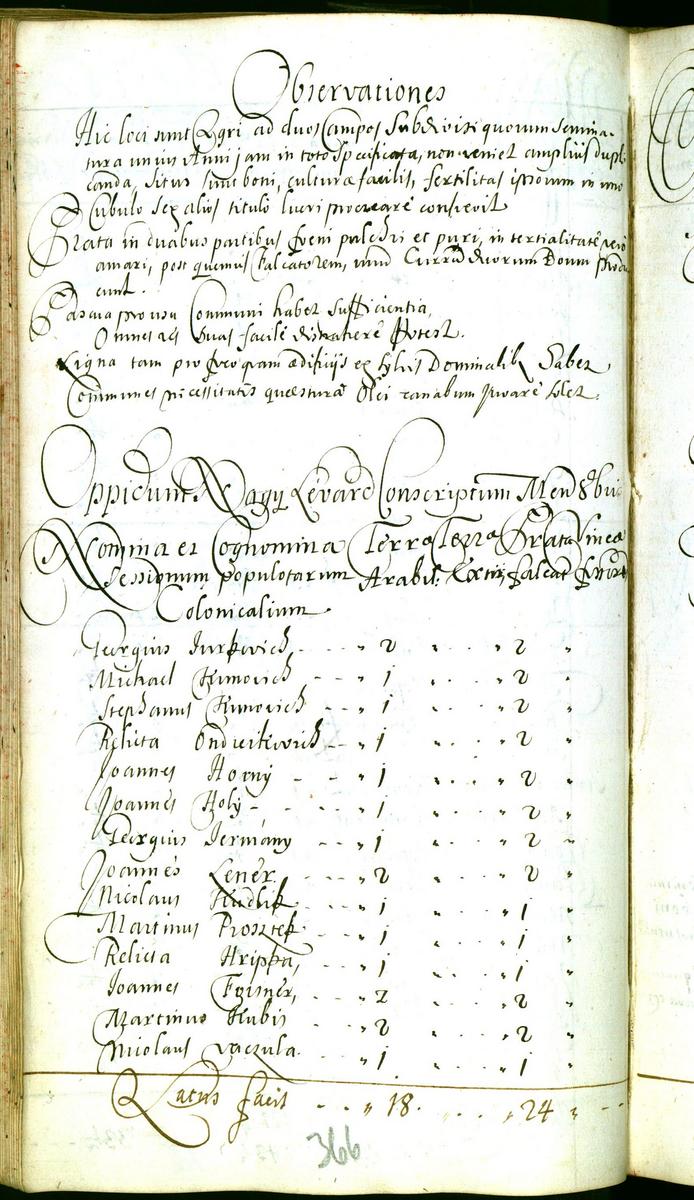 Observationes
Hic loci sunt Agri ad duos Campos Subdivisi quorum semina-
tura unius Anni jam in toto specificata, non veniet amplius dupli
canda, situs sunt boni, culturæ facilis, fertilitas ipsorum in uno
Cubulo sex alios titulo lucri procreare consvevit
Prata in duabus partibus foeni pulchri et puri, in tertialitate vero
amari, post quemvis falcatorem, unum Currum duorum Boum produ
cunt.
Pascua pro usu Communi habet sufficientia,
Omnes res suas facile distrahere potest.
Ligna tam pro foco quam ædificijs ex sylvis Dominalib habet
Communes necessitates quæstura Olei canabum juvare solet.
Oppidum Nagy Lévárd Conscriptum Men 8bris
Nomina et Cognomina Terræ Terræ Prata Vineæ
Sessionum populotarum Arabil: Extir, falcat
Colonicalium
Georgius Jurkovich - - - " 2 " . . . " 2 "
Michael Kunovich - - " 1 " . . . " 2 "
Stephanus Kunovich - - " 1 " . . . " 2 "
Relicta - - " 1 " . . . " 2 "
Joannes Horny - - - " 1 " . . . " 2 "
Joannes Holy - - - " 1 " . . . " 2 "
Georgius Jermány - - " 1 " . . . " 2 "
Joannes Lenér - - - " 2 " . . . " 2 "
Nicolaus Kudlik - - " 1 " . . . " 1 "
Martinus Prosztek - - " 1 " . . . " 1 "
Relicta Hrippa, - - - " 1 " . . . " 1 "
Joannes - - - " 2 " . . . " 2 "
Martinus Kubis - - - " 2 " . . . " 2 "
Nicolaus Vaczula - - - " 1 " . . . " 1 "
Latus facit - - - " 18. . . . " 24 " - -
366